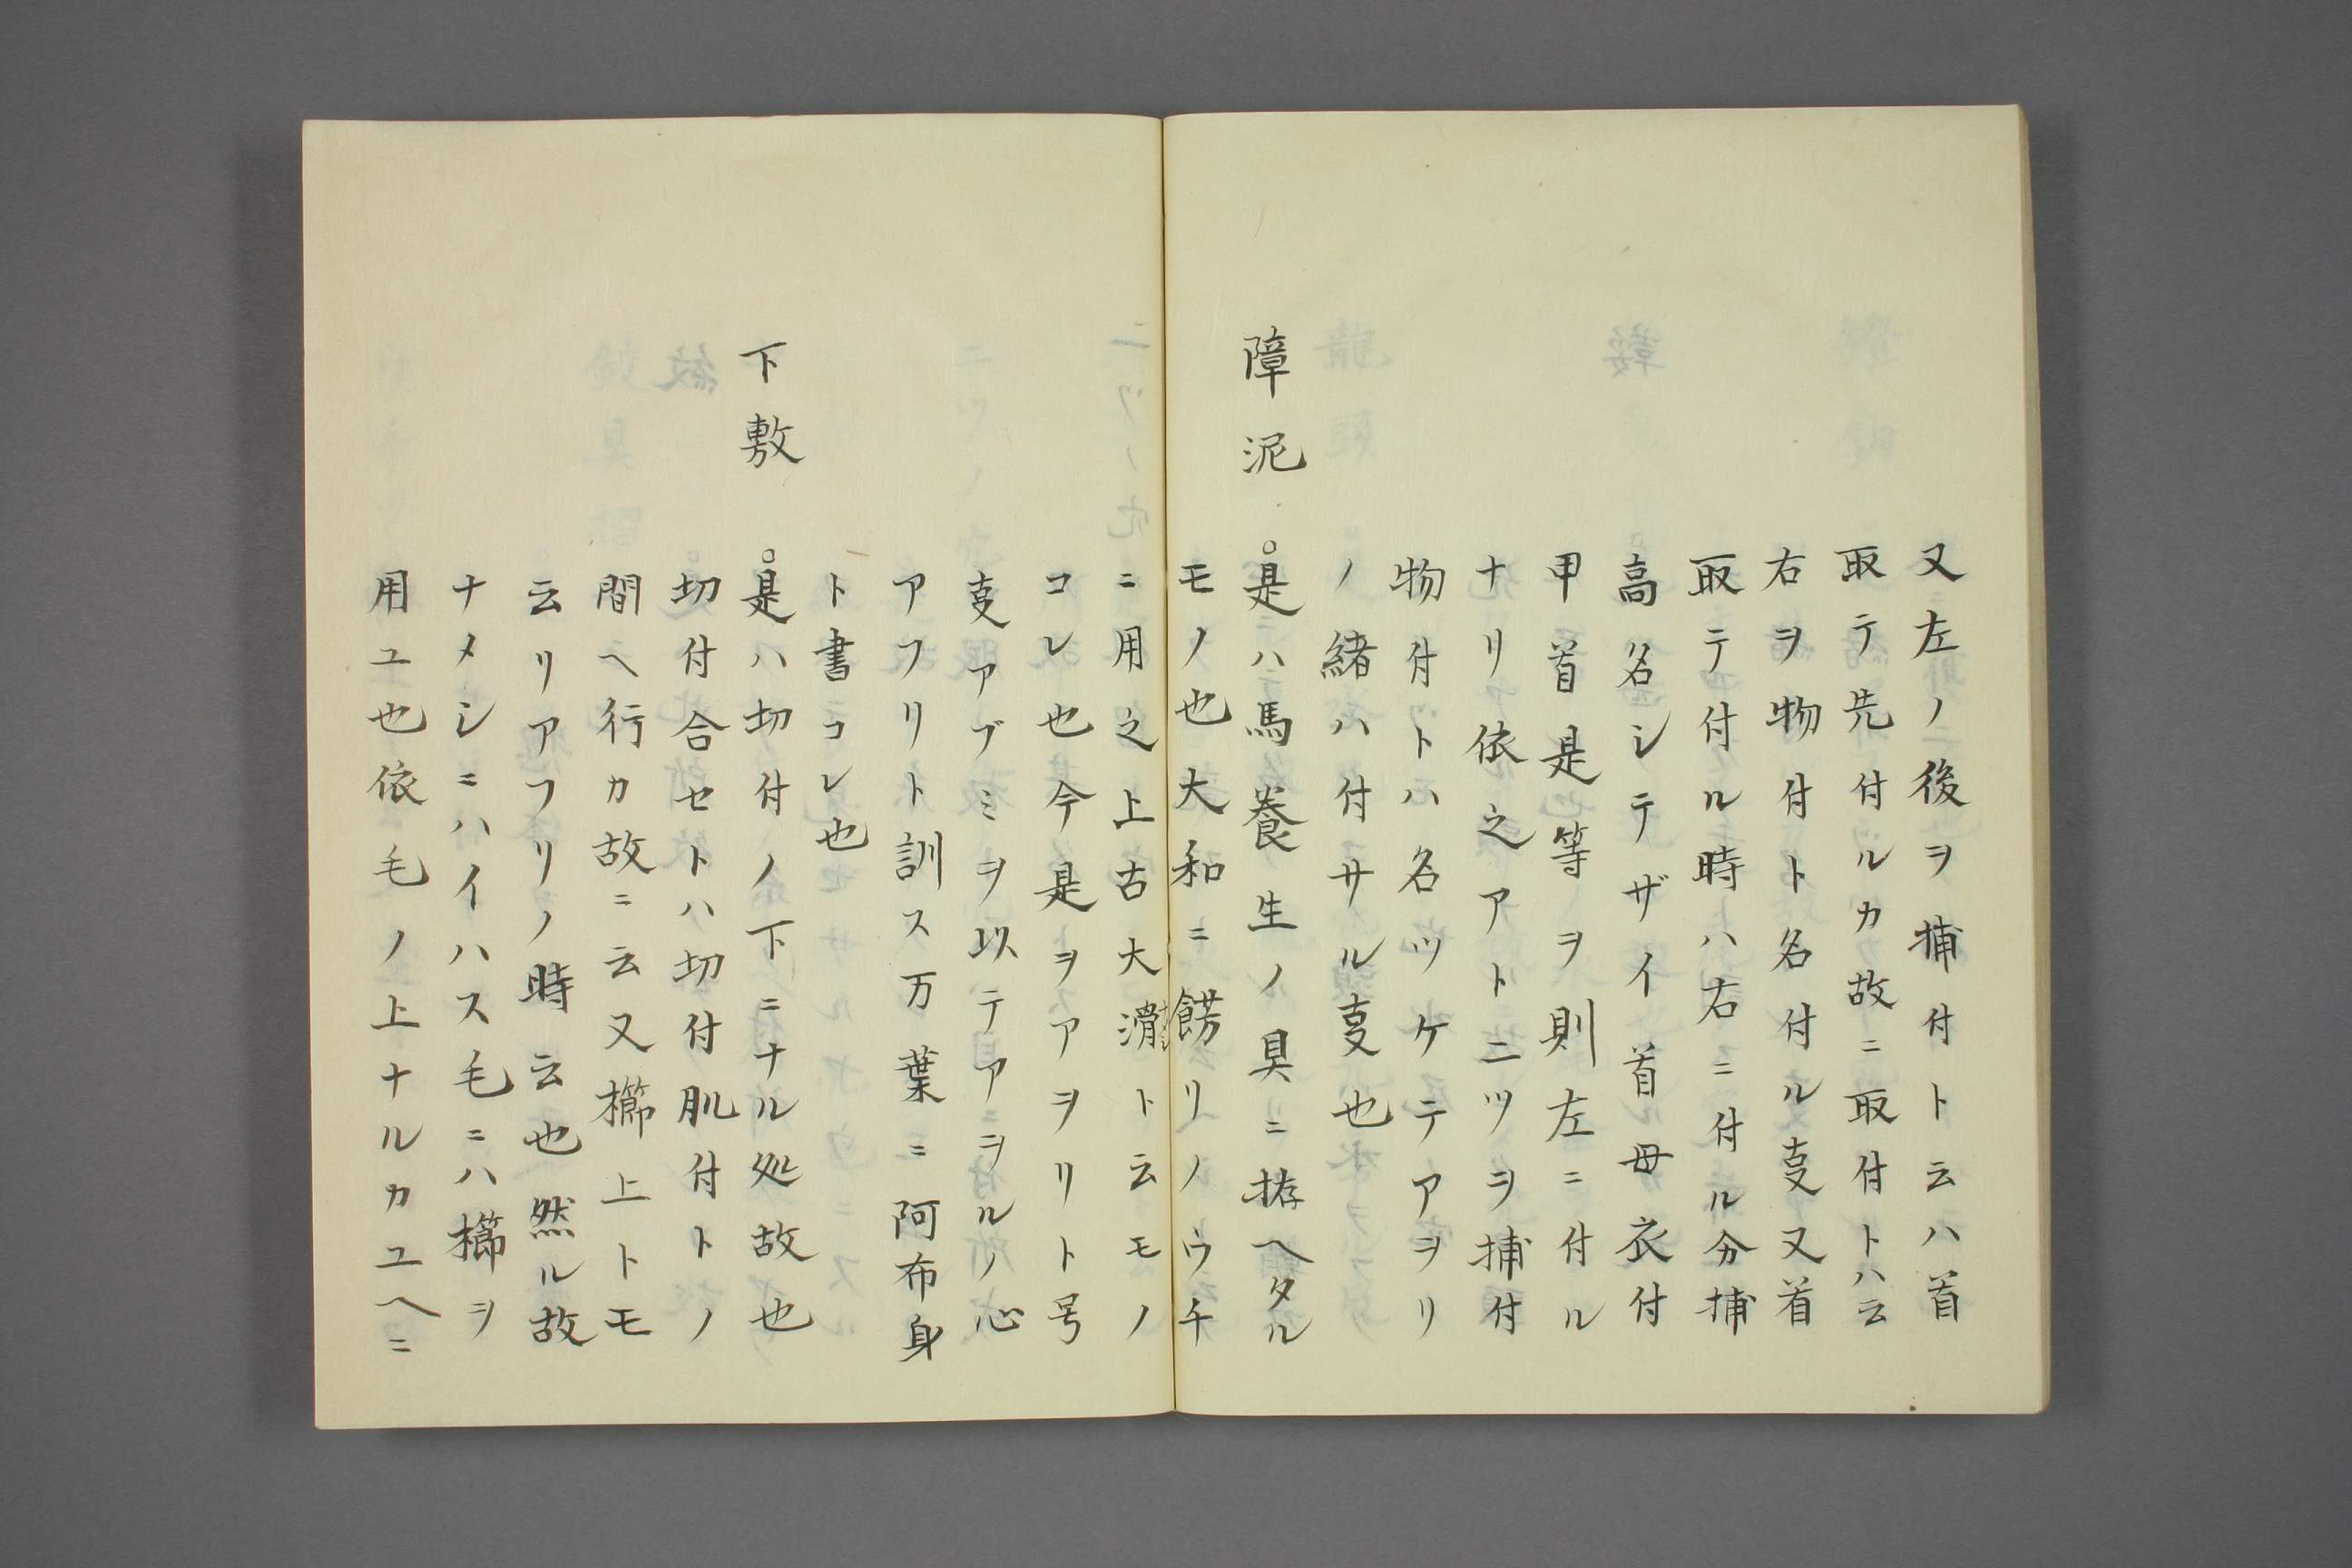 又左ノ後ヲ捕付ト云ハ首
取テ先付ルカ故ニ取付トハ云
右ヲ物付ト名付ル㕝又首
取テ付ル時ハ右ニ付ル分捕
高名シテザイ首母衣付
甲首是等ヲ則左ニ付ル
ナリ依之アト二ツヲ捕付
物付トハ名ツケテアヲリ
ノ緒ハ付サル㕝也
障泥 。是ハ馬養生ノ具ニ拵ヘタル
モノ也大和ニ餝リノウチ
ニ用之上古大滑ト云モノ
コレ也今是ヲアヲリト号
㕝アブミヲ以テアヲルノ心
アフリト訓ス万葉ニ阿布身
ト書コレ也
下敷 。是ハ切付ノ下ニナル処故也
切付合セトハ切付肌付トノ
間ヘ行カ故ニ云又櫛上トモ
云リアフリノ時云也然ル故
ナメシニハイハス毛ニハ櫛ヲ
用ユ也依毛ノ上ナルカユヘニ